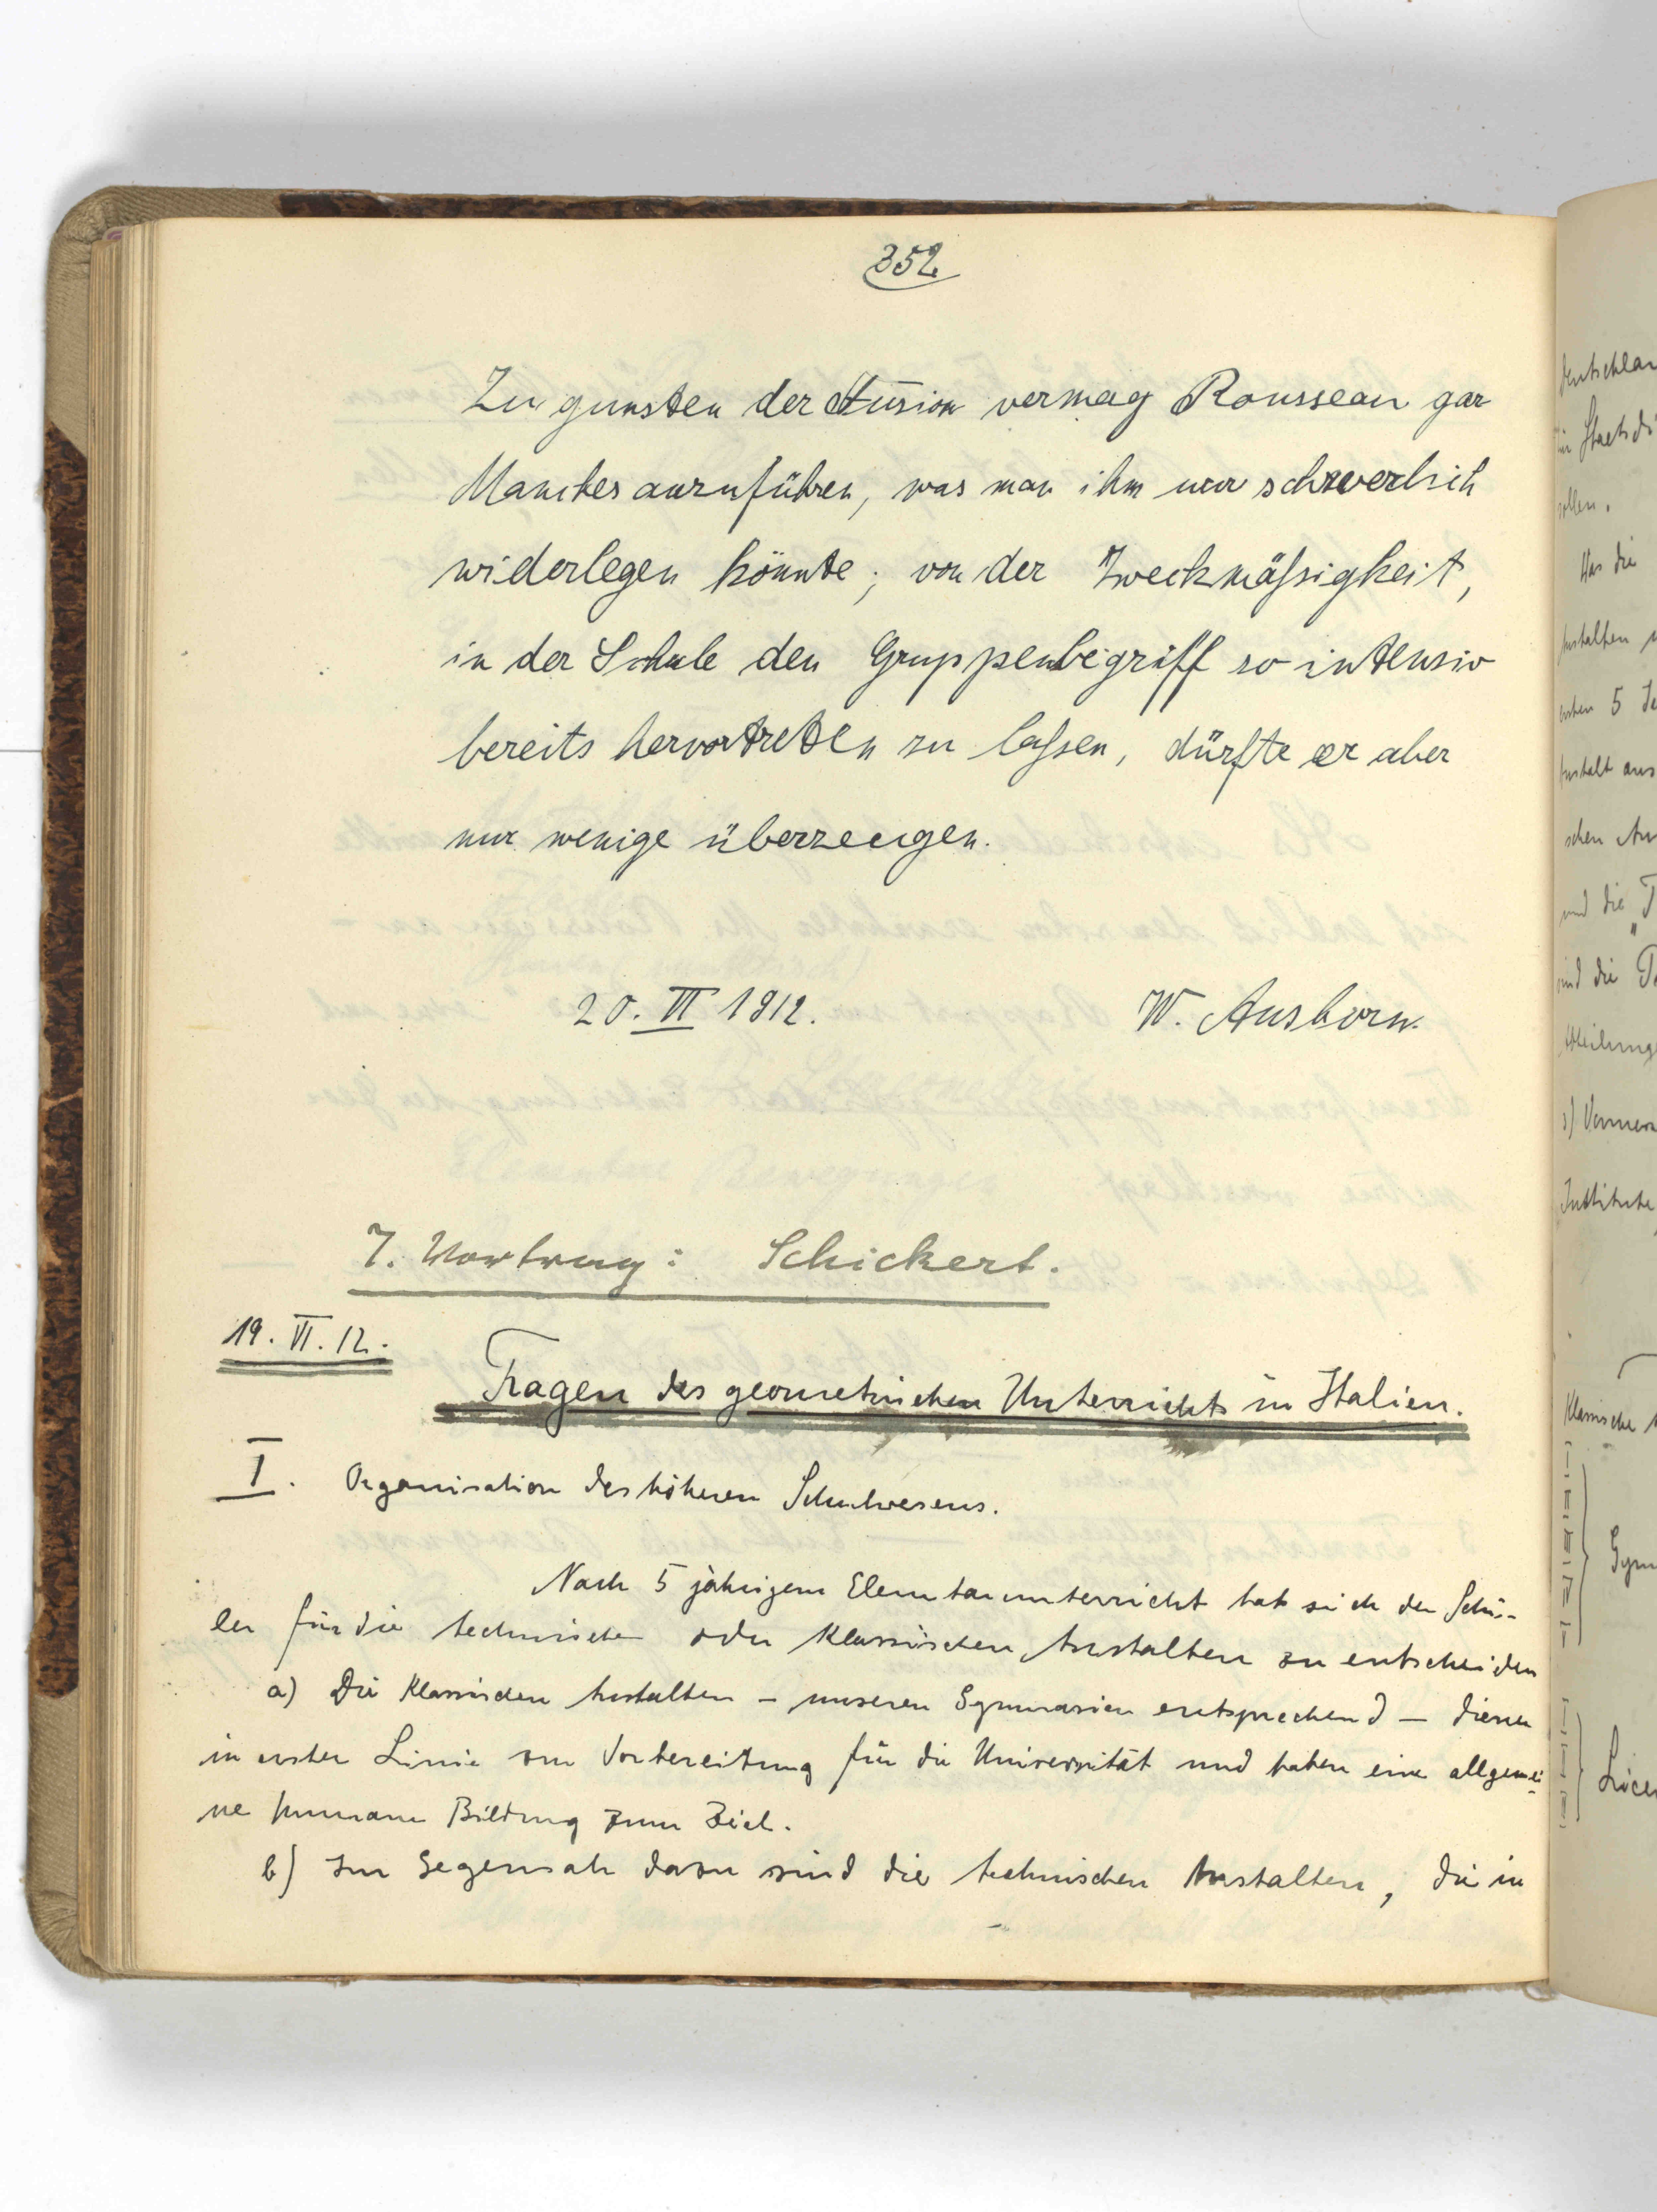 352
Zu gunsten der Fusion vermag Rousseau gar
Manches anzuführen, was man ihm nur schwerlich
widerlegen könnte; von der Zweckmäßigkeit,
in der Schule den Gruppenbegriff so intensiv
bereits hervortreten zu laßen, dürfte er aber
nur wenige überzeugen.
20. VI 1912. W. Ausborn.
7. Vortrag: Schickert.
19. VI. 12.
Fragen des geometrischen Unterrichts in Italien.
I. Organisation des höheren Schulwesens.
Nach 5 jährigem Elementarunterricht hat sich der Schü-
ler für die technischen oder klassischen Anstalten zu entscheiden
a) Die klassischen Anstalten – unseren Gymnasien entsprechend – dienen
in erster Linie zur Vorbereitung für die Universität und haben eine allgemei-
ne humane Bildung zum Ziel.
b) Im Gegensatz dazu sind die technischen Anstalten, die in